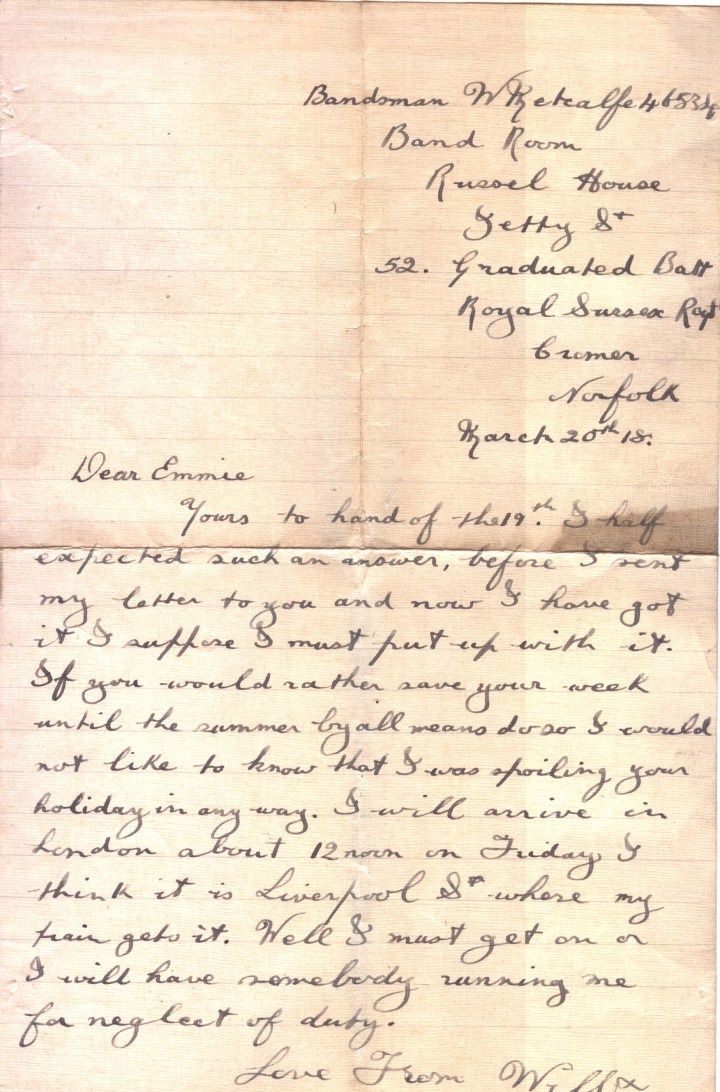 Bandsman W Metcalfe 46534
Band Room
Russel House
Jetty St
52. Graduated Batt
Royal Sussex Regt
Cromer
Norfolk
March 20th 18.
Dear Emmie
Yours to hand of the 19th. I half
expected such an answer, before I sent
my letter to you and now I have got
it I suppose I must put up with it.
If you would rather save your week
until the summer by all means do so I would
not like to know that I was spoiling your
holiday in any way. I will arrive in
London about 12 noon on Friday I
think it is Liverpool St where my
train gets it. Well I must get on or
I will have somebody running me
for neglect of duty.
Love From